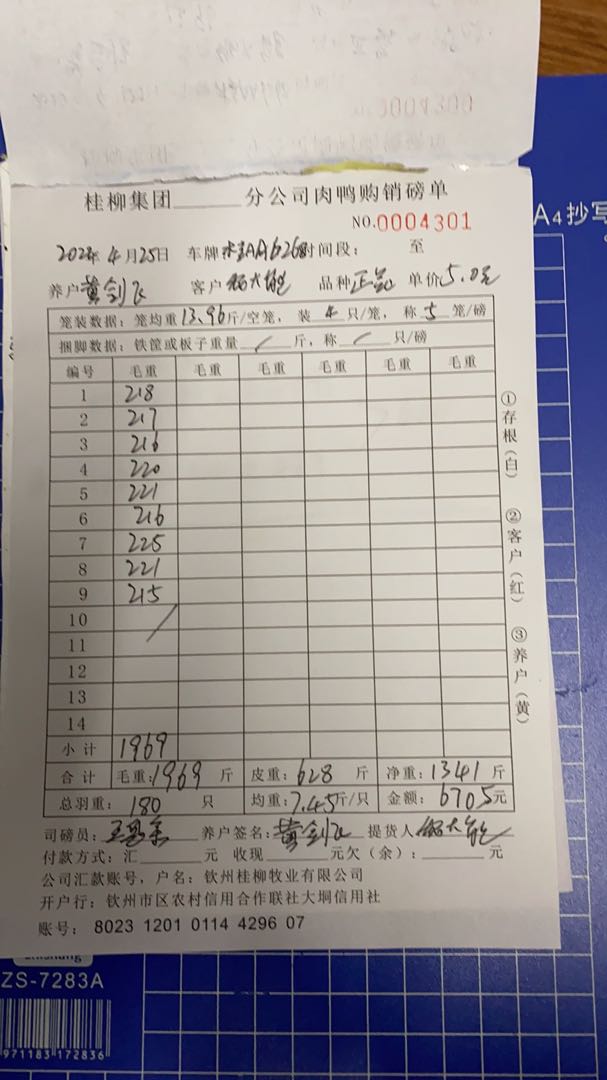 0004300
桂柳集团______分公司肉鸭购销磅单
NO.0004301
4月25日 车牌 时间段： 至
A4抄写
养户 黄剑飞 客户 品种 正品 单价 5.0元
笼装数据：笼均重13.96斤/空笼，装4只/笼，称5笼/磅
捆脚数据：铁筐或板子重量 / 斤，称 / 只/磅
编号 毛重 毛重 毛重 毛重 毛重 毛重
1 218
2 217
3 216
4 220
5 221
6 216
7 225
8 221
9 215
10 /
11
12
13
14
小计 1969
合计 毛重：1969 斤 皮重：628 斤 净重：1341 斤
总羽重：180 只 均重：7.45斤/只 金额：6705元
①存根（白） ②客户（红） ③养户（黄）
司磅员： 养户签名：黄剑飞 提货人
付款方式：汇______元 收现______元欠（余）：______元
公司汇款账号，户名：钦州桂柳牧业有限公司
开户行：钦州市区农村信用合作联社大垌信用社
账号： 8023 1201 0114 4296 07
ZS-7283A
971183 172836